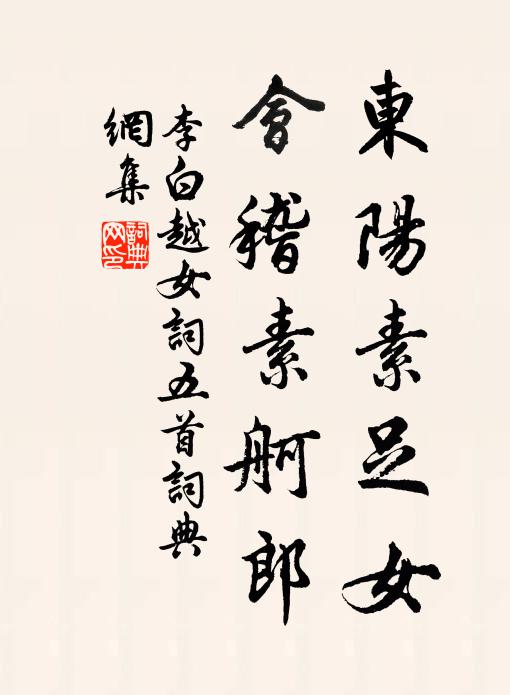 東陽素足女
會稽素舸郎
李白越女詞五首詞典
網集
詞典網印